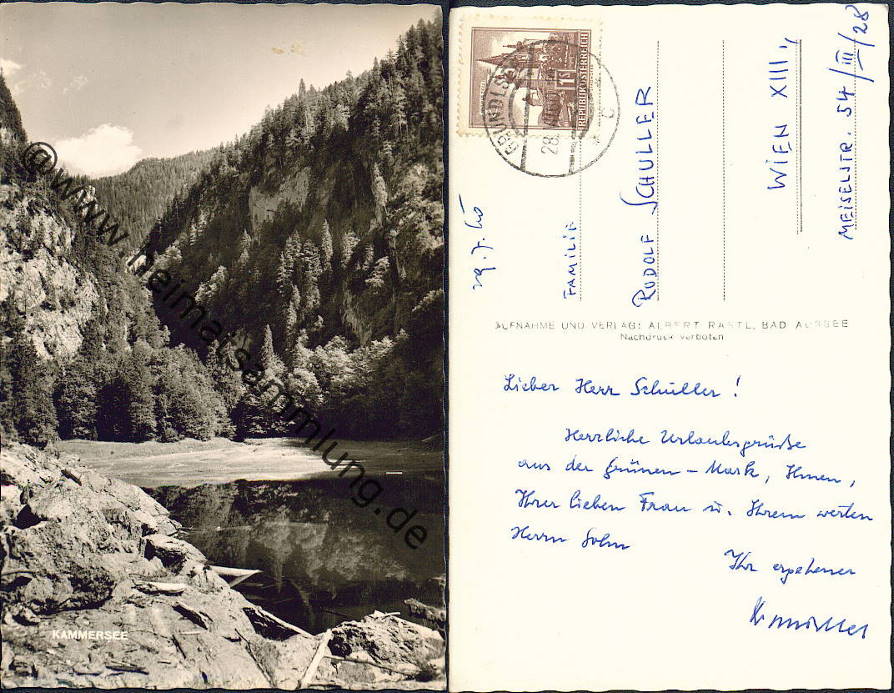 © www.heimatsammlung.de
KAMMERSEE
REPUBLIK ÖSTERREICH
1S
GRUNDLSEE
FAMILIE
RUDOLF SCHULLER
WIEN XIII.,
MEISELSTR. 54/III/28
AUFNAHME UND VERLAG: ALBERT RASTL, BAD AUSSEE
Nachdruck verboten
Lieber Herr Schuller!
Herzliche Urlaubsgrüße
aus der Grünen-Mark, Ihnen,
Ihrer lieben Frau u. Ihrem werten
Herrn Sohn
Ihr ergebener